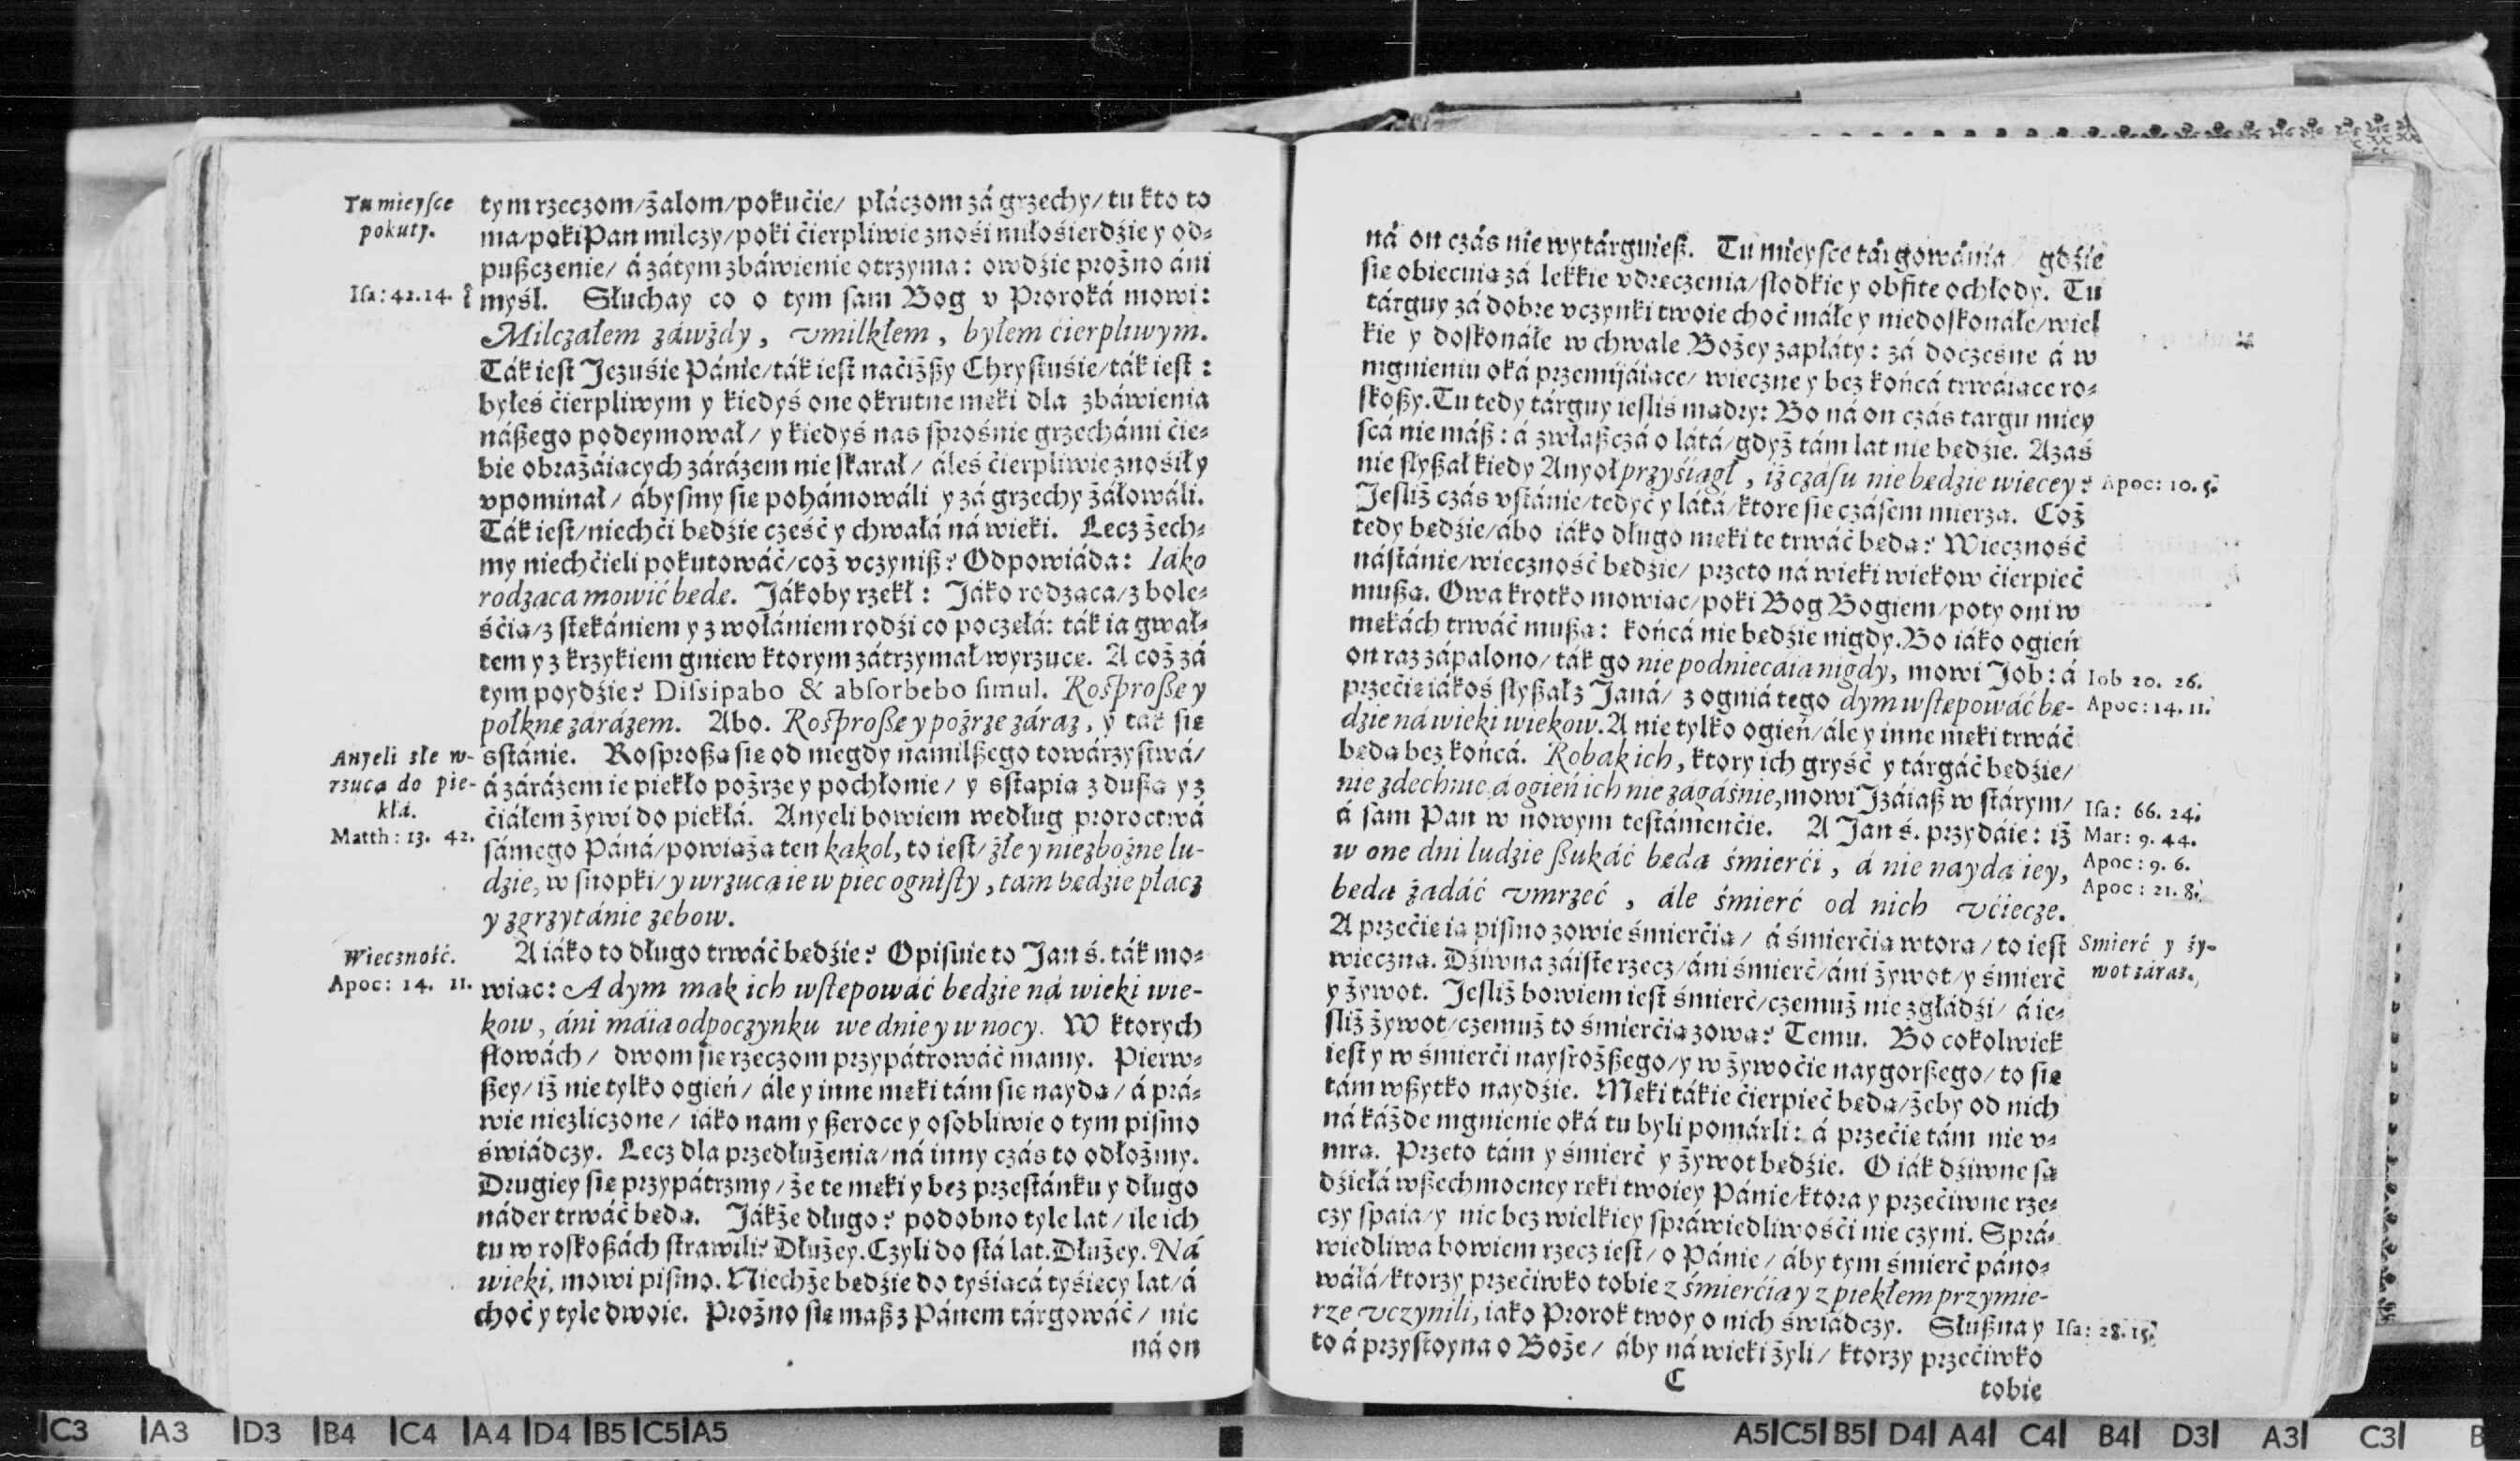 Tu mieysce
pokuty.
tym rzeczom/żalom/pokućie/ płáczom zá grzechy/ tu kto to
ma/poki Pan milczy/poki ćierpliwie znośi miłośierdźie y od-
pußczenie/ á zátym zbáwienie otrzyma: owdźie prożno áni
Isa: 42.14.
myśl. Słuchay co o tym sam Bog v Proroká mowi:
Milczałem záwżdy, vmilkłem, byłem ćierpliwym.
Ták iest Jezuśie Pánie/ták iest naćiżßy Chrystuśie/ták iest:
byłeś ćierpliwym y kiedyś one okrutne męki dla zbáwienia
náßego podeymował/ y kiedyś nas sprośnie grzechámi ćie-
bie obrażáiących zárázem nie skarał/ áleś ćierpliwie znośił y
vpominał/ ábysmy się pohámowáli y zá grzechy żáłowáli.
Ták iest/niechći będźie cześć y chwałá ná wieki. Lecz żech-
my niechćieli pokutowáć/coż vczyniß? Odpowiáda: Iáko
rodząca mowić będę. Jákoby rzekł: Jáko rodząca/z bole-
śćią/z stękániem y z wołániem rodźi co poczęłá: ták ia gwał-
tem y z krzykiem gniew ktorym zátrzymał/wyrzucę. A coż zá
tym poydźie? Dissipabo & absorbebo simul. Rosproßę y
połknę zárázem. Abo. Rosproßę y pożrzę záraz, y ták się
Anyeli złe w-
rzucą do pie-
kłá.
Matth: 13. 42.
sstánie. Rosproßą się od niegdy namilßego towárzystwá/
á zárázem ie piekło pożrze y pochłonie/ y sstąpią z dußą y z
ćiáłem żywi do piekłá. Anyeli bowiem według proroctwá
sámego Páná/powiążą ten kąkol, to iest/ złe y niezbożne lu-
dzie, w snopki/ y wrzucą ie w piec ognisty, tam będzie płácz
y zgrzytánie zębow.
Wieczność.
Apoc: 14. 11.
A iáko to długo trwáć będźie? Opisuie to Jan ś. ták mo-
wiąc: A dym mąk ich wstępowáć będzie ná wieki wie-
kow, áni máią odpoczynku we dnie y w nocy. W ktorych
słowách/ dwom się rzeczom przypátrowáć mamy. Pierw-
ßey/ iż nie tylko ogień/ ále y inne męki tám się naydą/ á prá-
wie niezliczone/ iáko nam y ßeroce y osobliwie o tym pismo
świádczy. Lecz dla przedłużenia/ná inny czás to odłożmy.
Drugiey się przypátrzmy/ że te męki y bez przestánku y długo
náder trwáć będą. Jákże długo? podobno tyle lat/ ile ich
tu w roskoßách strawili? Dłużey. Czyli do stá lat. Dłużey. Ná
wieki, mowi pismo. Niechże będźie do tyśiącá tyśięcy lat/ á
choć y tyle dwoie. Prożno się maß z Pánem tárgowáć/ nic
ná on
ná on czás nie wytárguieß. Tu mieysce tárgowánia/ gdźie
się obiecuią zá lekkie vdręczenia/ słodkie y obfite ochłody. Tu
tárguy zá dobre vczynki twoie choć máłe y niedoskonáłe/wiel
kie y doskonáłe w chwale Bożey zapłáty: zá doczesne á w
mgnieniu oká przemijáiące/ wieczne y bez końcá trwáiące ro-
skoßy. Tu tedy tárguy iesliś mądry: Bo ná on czás targu miey
scá nie máß: á zwłaßczá o látá/gdyż tám lat nie będźie. Azaś
nie słyßał kiedy Anyoł przyśiągł, iż czásu nie będzie więcey?
Apoc: 10. 5.
Jesliż czás vstánie/tedyć y látá/ktore się czásem mierzą. Coż
tedy będźie/ábo iáko długo męki te trwáć będą? Wieczność
nástánie/wieczność będźie/ przeto ná wieki wiekow ćierpieć
mußą. Owa krotko mowiąc/poki Bog Bogiem/poty oni w
mękách trwáć mußą: końcá nie będźie nigdy. Bo iáko ogień
on raz zápalono/ ták go nie podniecáią nigdy, mowi Job: á
Iob 20. 26.
przećie iákoś słyßał z Janá/ z ogniá tego dym wstępowáć bę-
Apoc: 14. 11.
dzie ná wieki wiekow. A nie tylko ogień/ále y inne męki trwáć
będą bez końcá. Robak ich, ktory ich gryść y tárgáć będźie/
nie zdechnie, á ogień ich nie zágáśnie, mowi Jzáiaß w stárym/
Isa: 66. 24.
á sam Pan w nowym testámenćie. A Jan ś. przydáie: iż
Mar: 9. 44.
w one dni ludzie ßukáć będą śmierći, á nie naydą iey,
Apoc: 9. 6.
będą żadáć vmrzeć, ále śmierć od nich vćiecze.
Apoc: 21. 8.
A przećię ią pismo zowie śmierćią/ á śmierćią wtorą/ to iest
Smierć y ży-
wot záraz.
wieczną. Dźiwna záiste rzecz/áni śmierć/áni żywot/y śmierć
y żywot. Jesliż bowiem iest śmierć/czemuż nie zgłádźi/ á ie-
sliż żywot/czemuż to śmierćią zową? Temu. Bo cokolwiek
iest y w śmierći naysroższego/y w żywoćie naygorßego/ to się
tám wßytko naydźie. Męki tákie ćierpieć będą/żeby od nich
ná káżde mgnienie oká tu byli pomárli: á przećię tám nie v-
mrą. Przeto tám y śmierć y żywot będźie. O iák dźiwne są
dźiełá wßechmocney ręki twoiey Pánie/ktora y przećiwne rze-
czy spaia/y nic bez wielkiey spráwiedliwośći nie czyni. Sprá-
wiedliwa bowiem rzecz iest/ o Pánie/ áby tym śmierć páno-
wáłá/ktorzy przećiwko tobie z śmierćią y z piekłem przymie-
rze vczynili, iako Prorok twoy o nich świádczy. Słußna y
Isa: 28. 15.
to á przystoyna o Boże/ áby ná wieki żyli/ ktorzy przećiwko
C
tobie
C3 A3 D3 B4 C4 A4 D4 B5 C5 A5
A5 C5 B5 D4 A4 C4 B4 D3 A3 C3